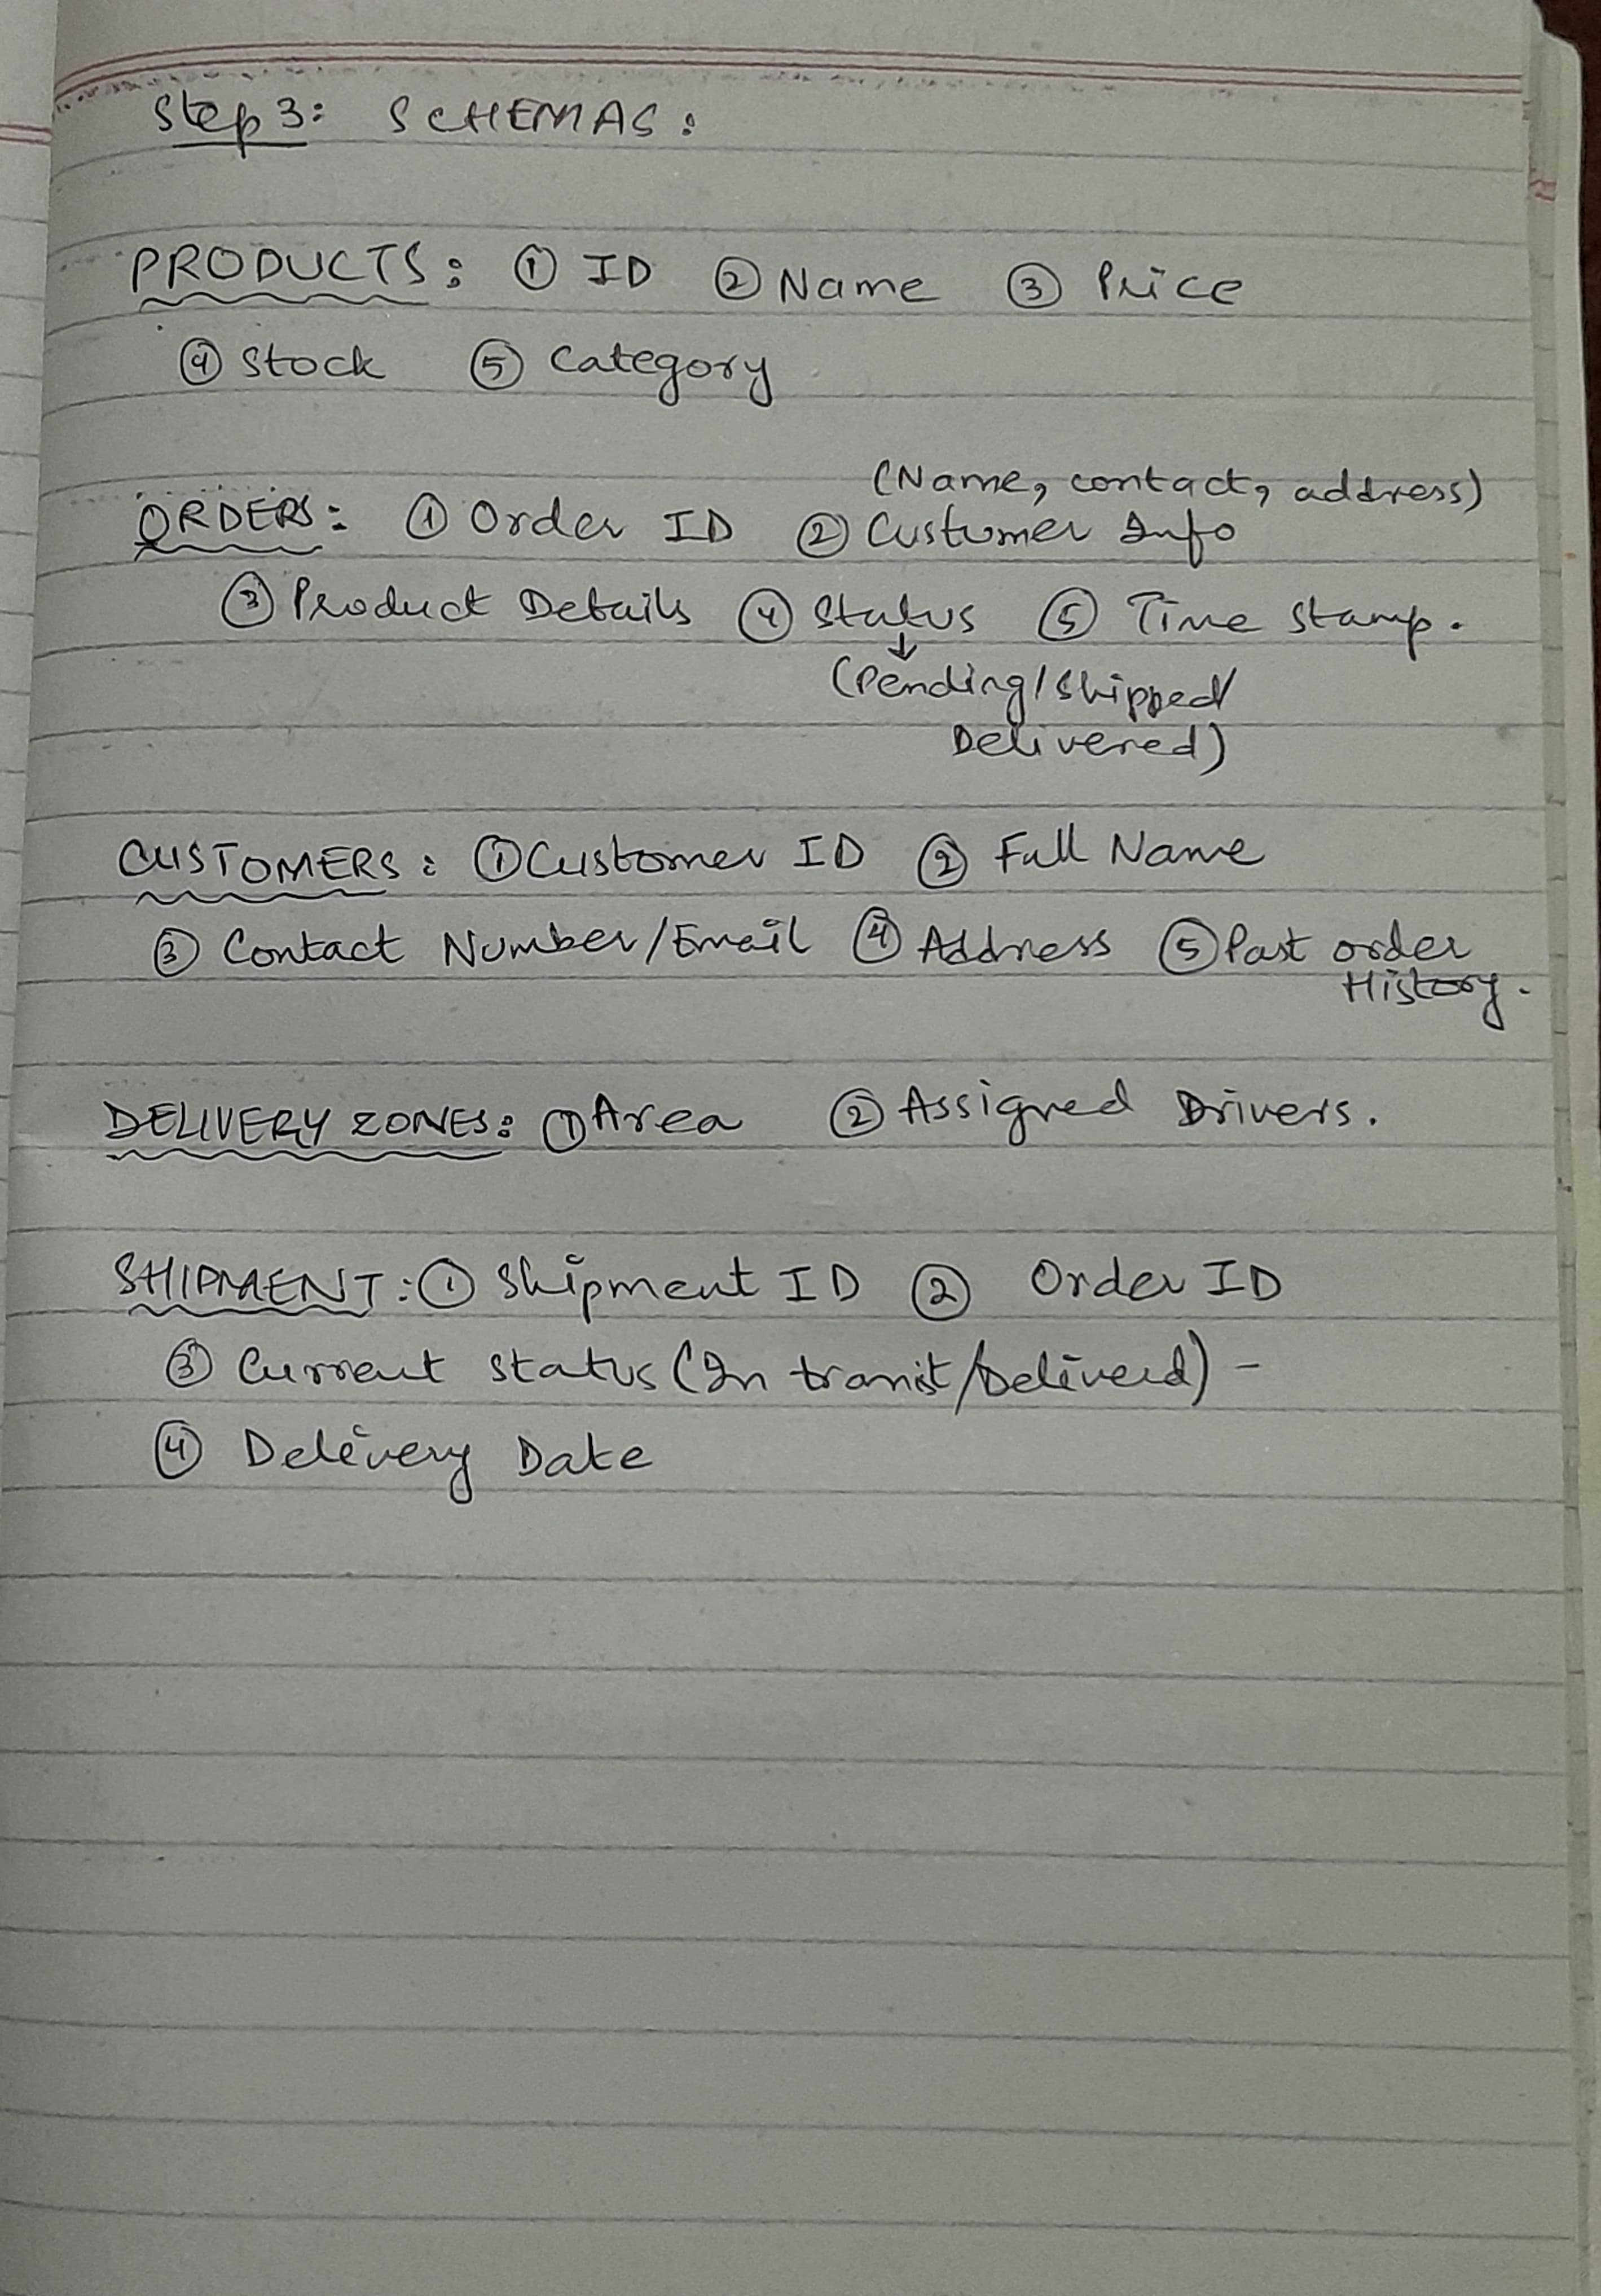 Step 3: SCHEMAS:
PRODUCTS: ① ID ② Name ③ Price
④ Stock ⑤ Category
(Name, contact, address)
ORDERS: ① Order ID ② Customer Info
③ Product Details ④ Status ⑤ Time Stamp.
↓
(Pending/Shipped/
Delivered)
CUSTOMERS: ① Customer ID ② Full Name
③ Contact Number/Email ④ Address ⑤ Past order
History.
DELIVERY ZONES: ① Area ② Assigned Drivers.
SHIPMENT: ① Shipment ID ② Order ID
③ Current Status (In transit/Delivered) -
④ Delivery Date